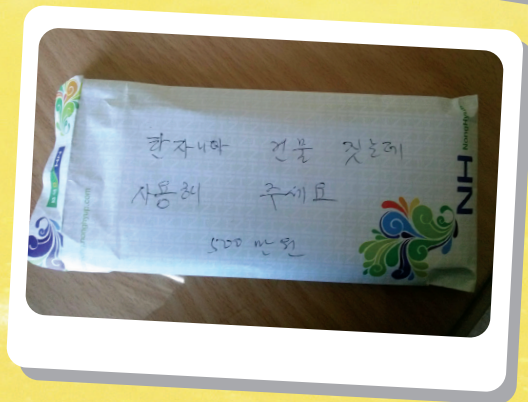 탄자니아 건물 짓는데
사용해 주세요
500만원
NH NongHyup